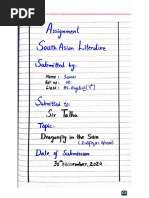 Assignment
South Asian Literature
Submitted by:
Name :
Roll no :
Class : Bs. English (7th)
Submitted to:
Sir Talha
Topic:
Dragonfly in the Sun
Date of Submission
30th November, 2024